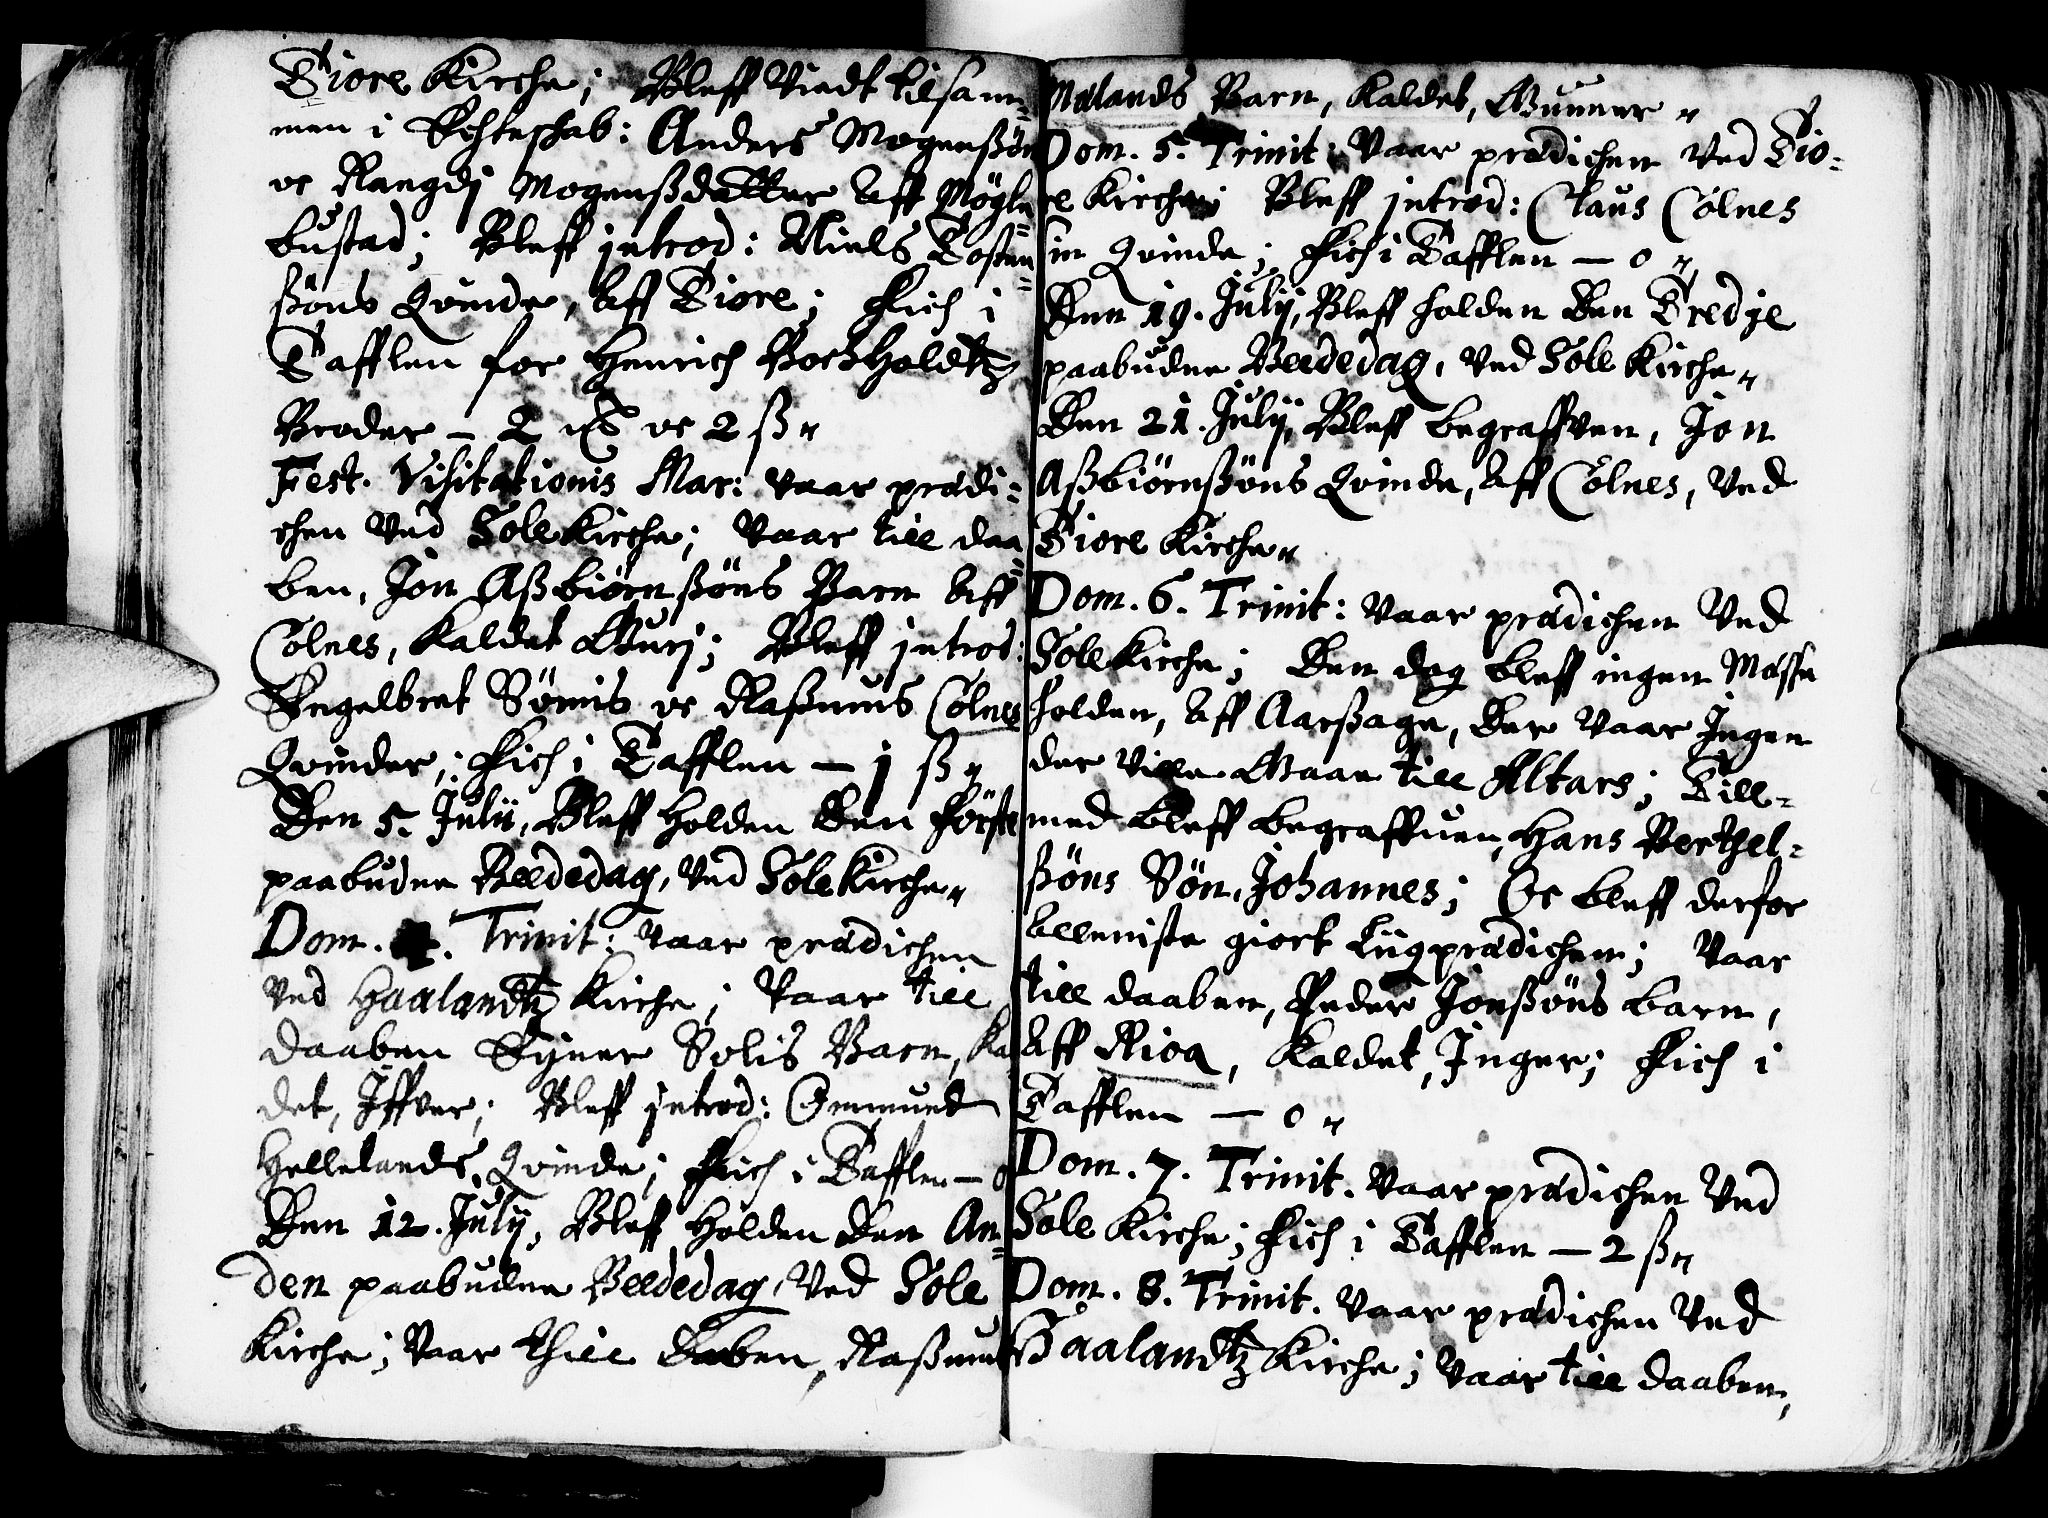 Tiore Kirche; Bleff Viedt tilsam-
men i Echteskab: Anders Mogenßön
oc Rangdj Mogenßdatter aff Mögle-
bustad; Bleff introd: Niels Tosten-
ßöns Qvinde, aff Tiore; Fich i
Tafflen for Henrich Bockholdtz
Broder – 2 oc 2 ß
Fest. Visitationis Mar: Vaar prædi-
chen Ved Sole Kirche; Vaar till daa-
ben, Jon Aßbiörnßöns Barn aff
Cölnes, Kaldet Gurj; Bleff introd:
Engelbret Sömis oc Raßmus Cölnes
Qvinder; Fich i Tafflen – j ß
Den 5. Julii, Bleff Holden Den Förste
paabudne Beededag, Ved Sole Kirche
Dom. 4. Trinit: Vaar prædichen
Ved Haalandtz Kirche; Vaar till
daaben Eyner Solis Barn, Kal
det, Iffver; Bleff introd: Ommund
Hellelands Qvinde; Fich i Tafflen – 0
Den 12. Julij, Bleff Holden Den An-
den paabudne Beededag, Ved Sole
Kirche; Vaar thill Daben, Raßmus
Mælands Barn, Kaldet, Gunner
Dom. 5. Trinit: Vaar prædichen Ved Tio-
re Kirche; Bleff introd: Claus Cölnes
sin Qvinde; Fich i Tafflen – 0
Den 19. Julij, Bleff Holden Den Tredje
paabudne Beededag, Ved Sole Kirche
Den 21. Julij, Bleff begraffven, Jon
Aßbiörnßöns Qvinde, aff Cölnes, Ved
Tiore Kirche
Dom. 6. Trinit: Vaar prædichen Ved
Sole Kirche; Den dag bleff ingen Mæsse
holden, aff Aarßage, Der Vaar Ingen
der Ville Gaae till Altars; Till-
med bleff begraffven, Hans Berthel-
ßöns Sön, Johannes; Oc bleff derfor
alleniste giort Liigprædichen; Vaar
till daaben, Peder Jonßöns barn,
aff Rioa, Kaldet, Inger; Fich i
Tafflen – 0
Dom. 7. Trinit. Vaar prædichen Ved
Sole Kirche; Fich i Tafflen – 2 ß
Dom. 8. Trinit. Vaar prædichen Ved
Haalandtz Kirche; Vaar till daaben,